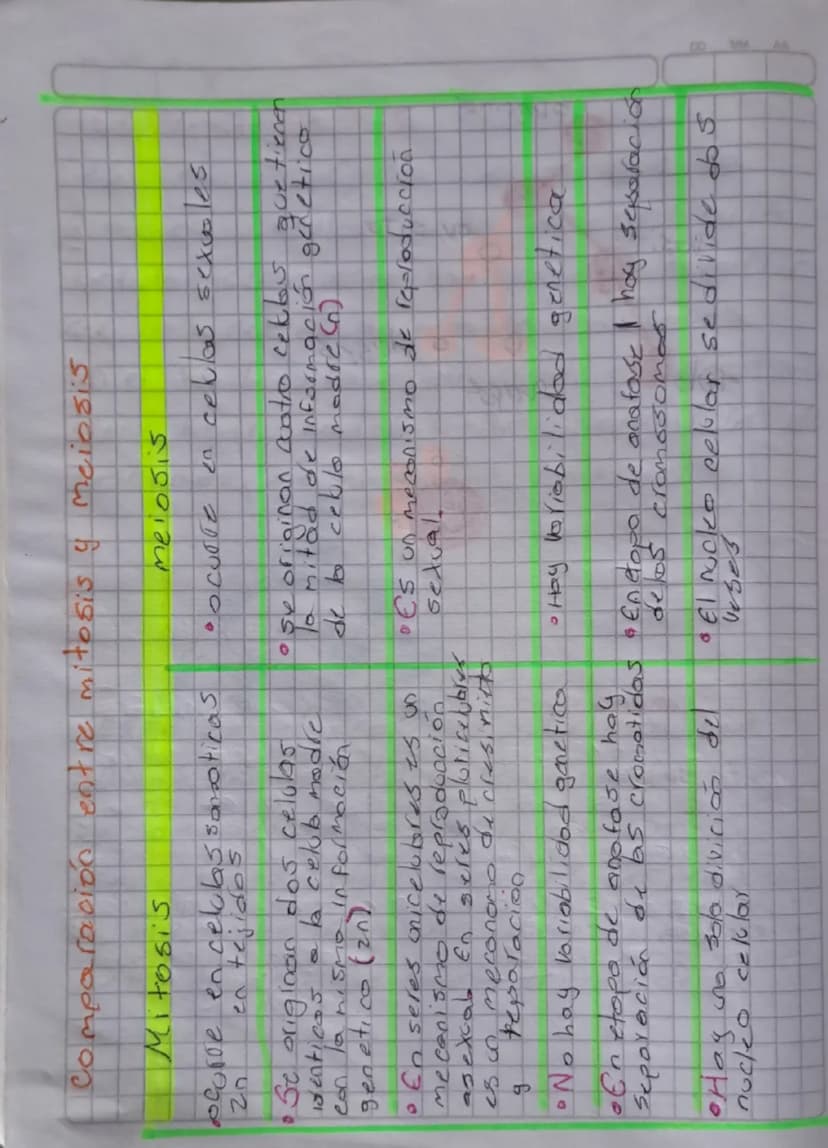 comparación entre mitosis y meiosis
Mitosis
meiosis
•ocurre en celulas somaticas
2n en tejidos
•ocurre en celulas sexuales
•Se originan dos celulas
identicas a la celula madre
con la misma información
genetico (2n)
•Se originan cuatro celulas que tienen
la mitad de información genetico
de la celula madre (n)
•En seres unicelulares es un
mecanismo de reproducción
asexual En seres pluricelulares
es un meconomo de cresimito
y reparación
•Es un mecanismo de reproducción
sexual.
•No hay variabilidad genetica
•Hay variabilidad genetica
•En etapa de anafase hay
separación de las cromatidas
•En etapa de anafase I hay separación
de los cromosomas
•Hay una sola divición del
nucleo celular
•El nucleo celular se divide dos
veses